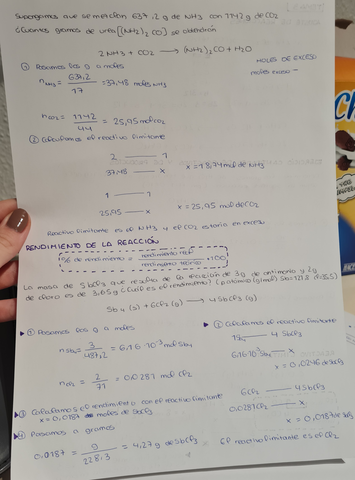 Supongamos que se mezclan 637,2g de NH3 con 1142g de CO2
¿Cuántos gramos de urea [(NH2)2 CO] se obtendrán
2 NH3 + CO2 → (NH2)2 CO + H2O
① Pasamos los g a moles
MOLES DE EXCESO
moles exceso -
nNH3 = 637,2 / 17 = 37,48 moles NH3
nCO2 = 1142 / 44 = 25,95 mol CO2
② Calculamos el reactivo limitante
2 — 1
37,48 — x   x = 18,74 mol de NH3
1 — 1
25,95 — x   x = 25,95 mol de CO2
Reactivo limitante es el NH3 y el CO2 estaría en exceso
RENDIMIENTO DE LA REACCIÓN
% de rendimiento = rendimiento real / rendimiento teórico · 100
La masa de SbCl3 que resulta de la reacción de 3g de antimonio y 2g
de cloro es de 3,65g ¿Cuál es el rendimiento?
Sb4 (s) + 6Cl2 (g) → 4SbCl3 (g)
① Pasamos los g a moles
nSb4 = 3 / 487,2 = 6,16·10-3 mol Sb4
nCl2 = 2 / 71 = 0,0281 mol Cl2
② Calculamos el reactivo limitante
1Sb4 — 4 SbCl3
6,16·10-3 Sb4 — x
x = 0,0246 de SbCl3
6Cl2 — 4SbCl3
0,0281Cl2 — x
x = 0,0187 de SbCl3
El reactivo limitante es el Cl2
③ Calculamos el rendimiento con el reactivo limitante
x = 0,0187 moles de SbCl3
④ Pasamos a gramos
0,0187 = g / 228,3 = 4,27 g de SbCl3